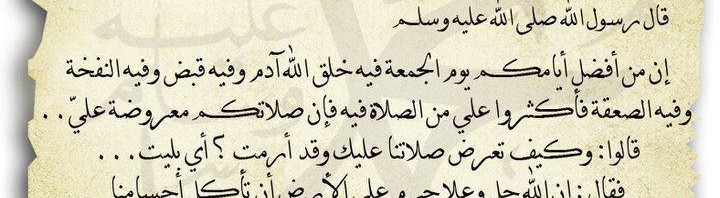 قال رسول الله صلى الله عليه وسلم
إن من أفضل أيامكم يوم الجمعة فيه خلق الله آدم وفيه قبض وفيه النفخة
وفيه الصعقة فأكثروا علي من الصلاة فيه فإن صلاتكم معروضة عليّ . .
قالوا : وكيف تعرض صلاتنا عليك وقد أرمت ؟ أي بليت . . .
فقال : إن الله جل وعلا حرم على الأرض أن تأكل أجسامنا